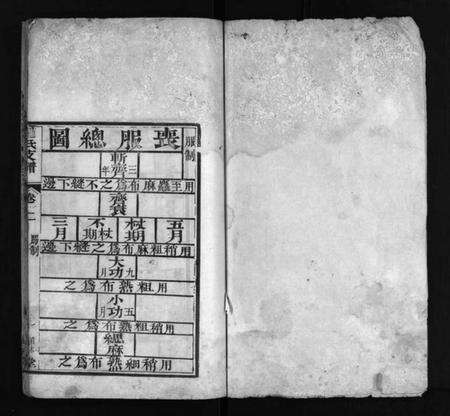 服制
喪服總圖
斬
齊 三年
用至麤麻布為之不縫下邊
齊衰
五月 杖期 不杖期 三月
用稍粗麻布為之縫下邊
大功 九月
用粗熟布為之
小功 五月
用稍粗熟布為之
緦麻
用稍細熟布為之
氏支譜
卷二
服制